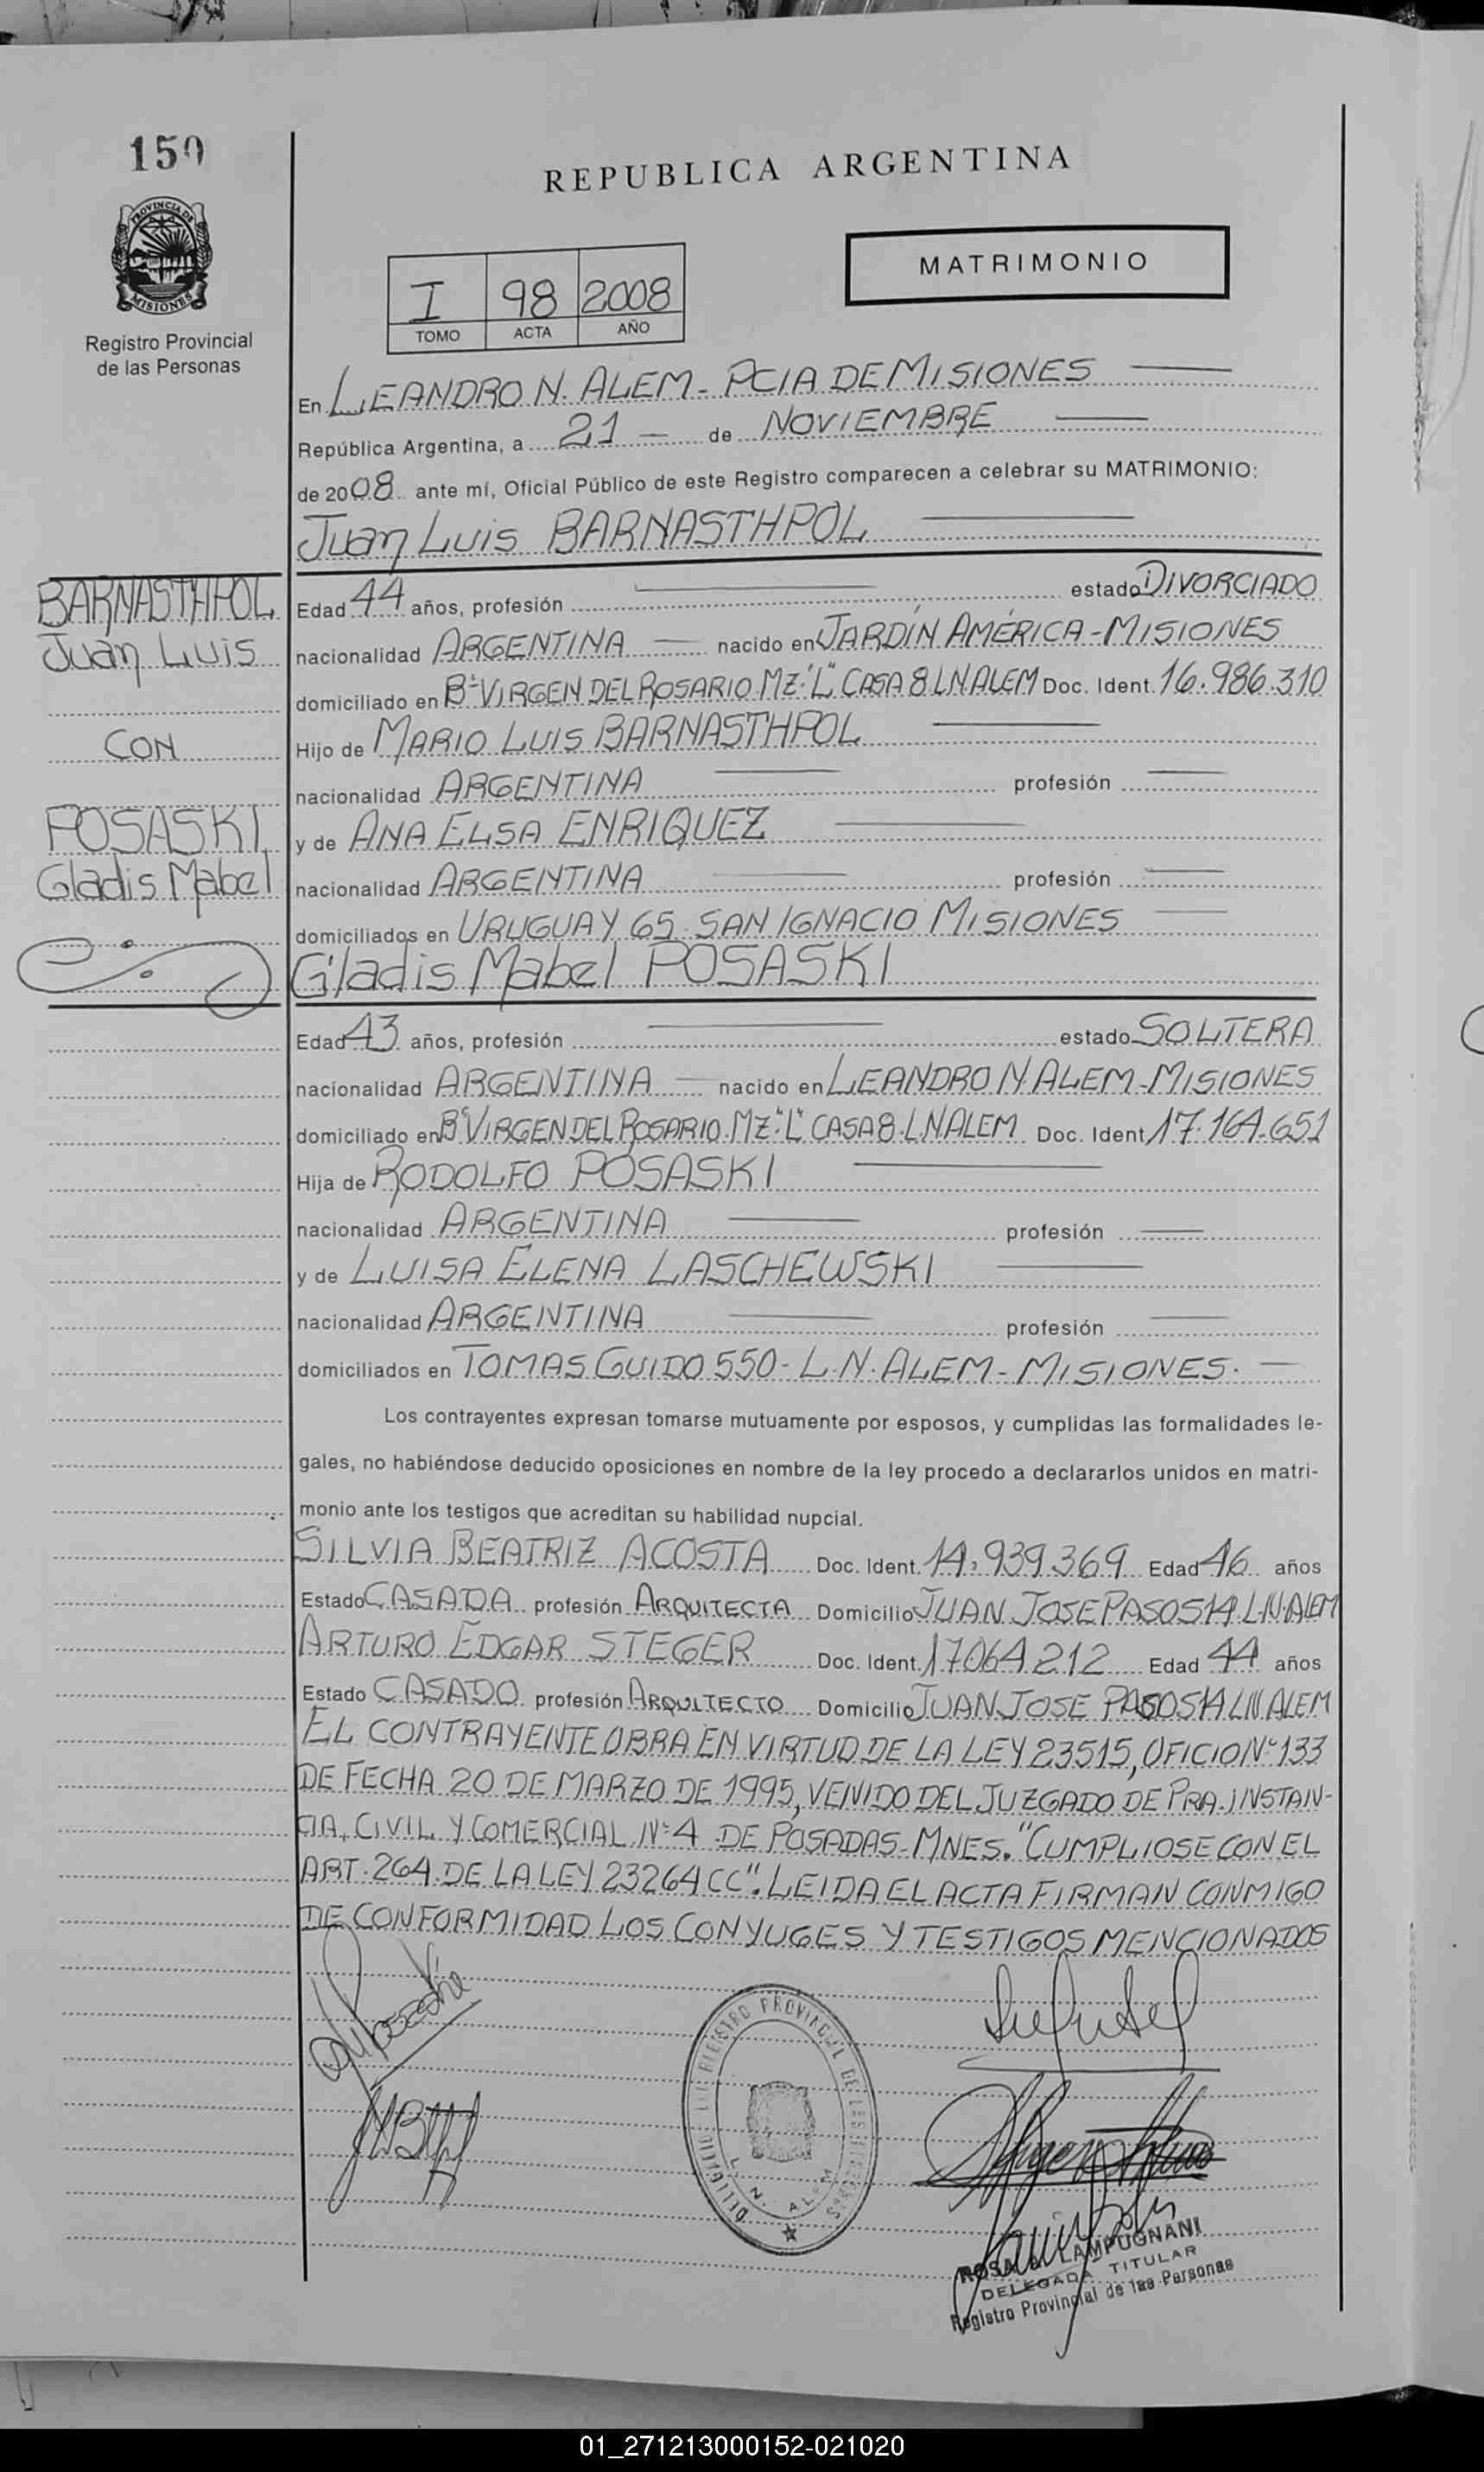 150
PROVINCIA DE
MISIONES
Registro Provincial
de las Personas
REPUBLICA ARGENTINA
MATRIMONIO
I 98 2008
TOMO ACTA AÑO
En LEANDRO N. ALEM - PCIA DE MISIONES
República Argentina, a 21 - de NOVIEMBRE
de 2008 ante mí, Oficial Público de este Registro comparecen a celebrar su MATRIMONIO:
Juan Luis BARNASTHPOL
BARNASTHPOL
Juan Luis
CON
POSASKI
Gladis Mabel
Edad 44 años, profesión estado DIVORCIADO
nacionalidad ARGENTINA nacido en JARDÍN AMÉRICA - MISIONES
domiciliado en Bº VIRGEN DEL ROSARIO MZ "L" CASA 8 LN ALEM Doc. Ident. 16.986.310
Hijo de MARIO LUIS BARNASTHPOL
nacionalidad ARGENTINA profesión
y de ANA ELSA ENRIQUEZ
nacionalidad ARGENTINA profesión
domiciliados en URUGUAY 65 SAN IGNACIO MISIONES
Gladis Mabel POSASKI
Edad 43 años, profesión estado SOLTERA
nacionalidad ARGENTINA nacido en LEANDRO N ALEM - MISIONES
domiciliado en Bº VIRGEN DEL ROSARIO MZ "L" CASA 8 L N ALEM Doc. Ident 17.164.651
Hija de RODOLFO POSASKI
nacionalidad ARGENTINA profesión
y de LUISA ELENA LASCHEWSKI
nacionalidad ARGENTINA profesión
domiciliados en TOMAS GUIDO 550 - L.N. ALEM - MISIONES.
Los contrayentes expresan tomarse mutuamente por esposos, y cumplidas las formalidades le-
gales, no habiéndose deducido oposiciones en nombre de la ley procedo a declararlos unidos en matri-
monio ante los testigos que acreditan su habilidad nupcial.
SILVIA BEATRIZ ACOSTA Doc. Ident. 14.939.369 Edad 46 años
Estado CASADA profesión ARQUITECTA Domicilio JUAN JOSE PASO 514 L.N. ALEM
ARTURO EDGAR STEGER Doc. Ident. 17064212 Edad 44 años
Estado CASADO profesión ARQUITECTO Domicilio JUAN JOSE PASO 514 LN ALEM
EL CONTRAYENTE OBRA EN VIRTUD DE LA LEY 23515, OFICIO Nº 133
DE FECHA 20 DE MARZO DE 1995, VENIDO DEL JUZGADO DE PRA. INSTAN-
CIA, CIVIL Y COMERCIAL Nº 4 DE POSADAS - MNES. "CUMPLIOSE CON EL
ART. 264 DE LA LEY 23264 CC". LEIDA EL ACTA FIRMAN CONMIGO
DE CONFORMIDAD LOS CONYUGES Y TESTIGOS MENCIONADOS
REGISTRO PROVINCIAL DE LAS PERSONAS
L. N. ALEM
ROSA LAMPUGNANI
DELEGADA TITULAR
Registro Provincial de las Personas
01_271213000152-021020